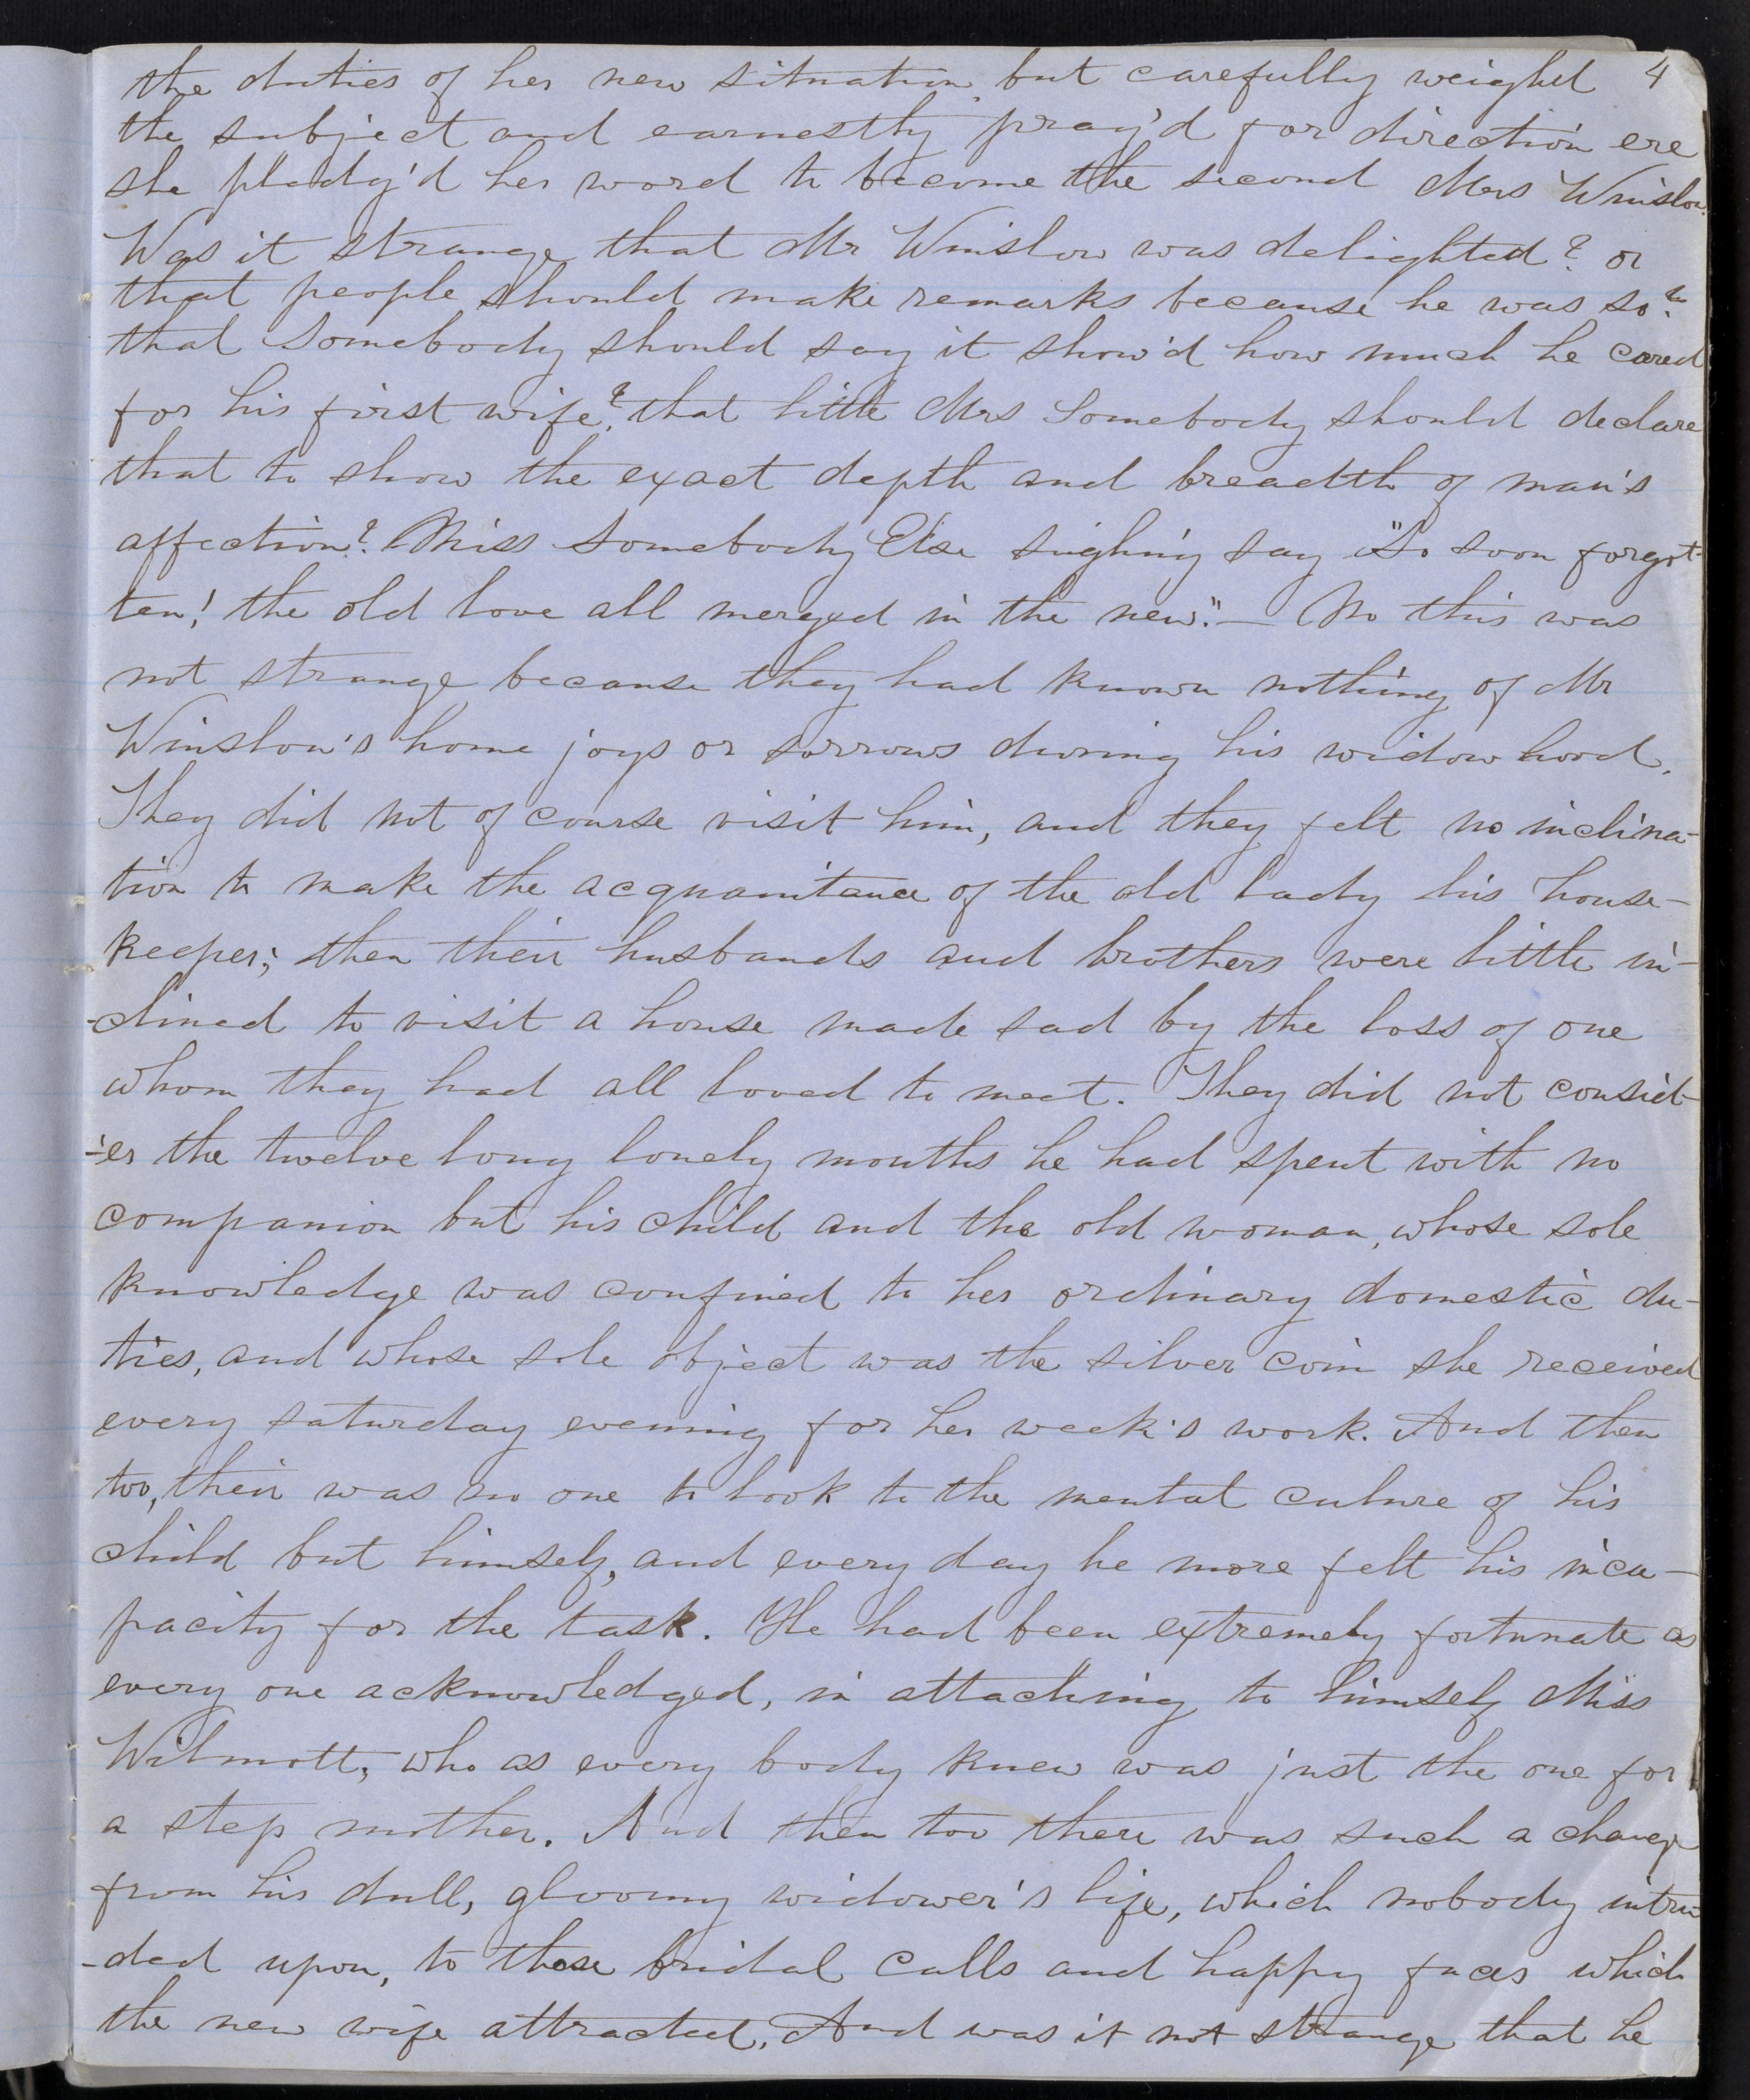 the duties of her new situation, but carefully weighed 4
the subject and earnestly pray'd for direction ere
she pledg'd her word to become the second Mrs Winslow.
Was it strange that Mr Winslow was delighted? or
that people should make remarks because he was so?
that Somebody should say it show'd how much he cared
for his first wife? that little Mrs Somebody should declare
that to show the exact depth and breadth of man's
affection? Miss Somebody Else sighing say "So soon forgot-
ten! the old love all merged in the new."— No this was
not strange because they had known nothing of Mr
Winslow's home joys or sorrows during his widowhood.
They did not of course visit him, and they felt no inclina-
tion to make the acquaintance of the old lady his house-
keeper; then their husbands and brothers were little in-
-clined to visit a house made sad by the loss of one
whom they had all loved to meet. They did not consid-
-er the twelve long lonely months he had spent with no
companion but his child and the old woman, whose sole
knowledge was confined to her ordinary domestic du-
ties, and whose sole object was the silver coin she received
every saturday evening for her week's work. And then
too, their was no one to look to the mental culture of his
child but himself, and every day he more felt his inca-
pacity for the task. He had been extremely fortunate as
every one acknowledged, in attaching to himself Miss
Wilmott, who as every body knew was just the one for
a step mother. And then too there was such a change
from his dull, gloomy widower's life, which nobody intru-
-ded upon, to those bridal calls and happy faces which
the new wife attracted. And was it not strange that he